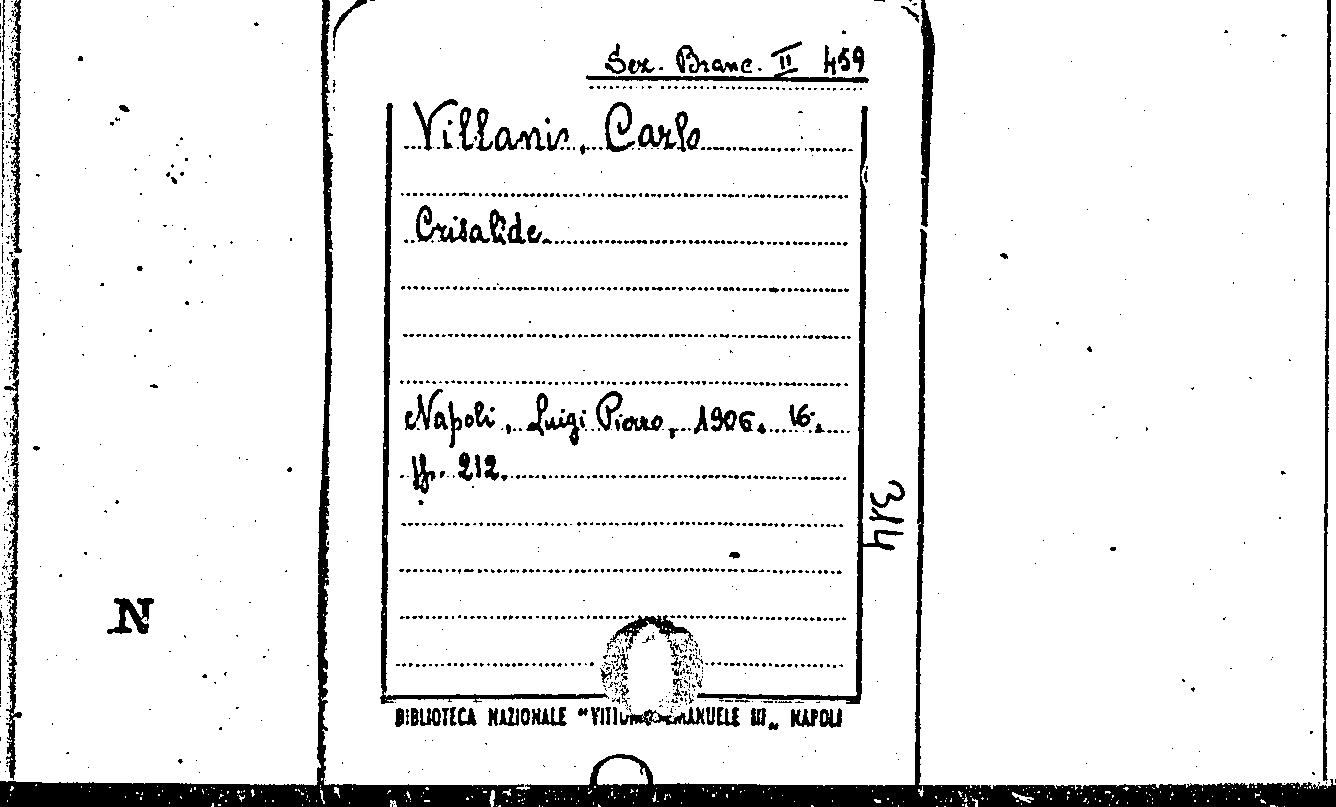 Sez. Branc. II 459
Villani, Carlo
Crisalide.
Napoli, Luigi Pierro, 1906. 16.
pp. 212.
314
N
BIBLIOTECA NAZIONALE "VITTORIO EMANUELE III„ NAPOLI